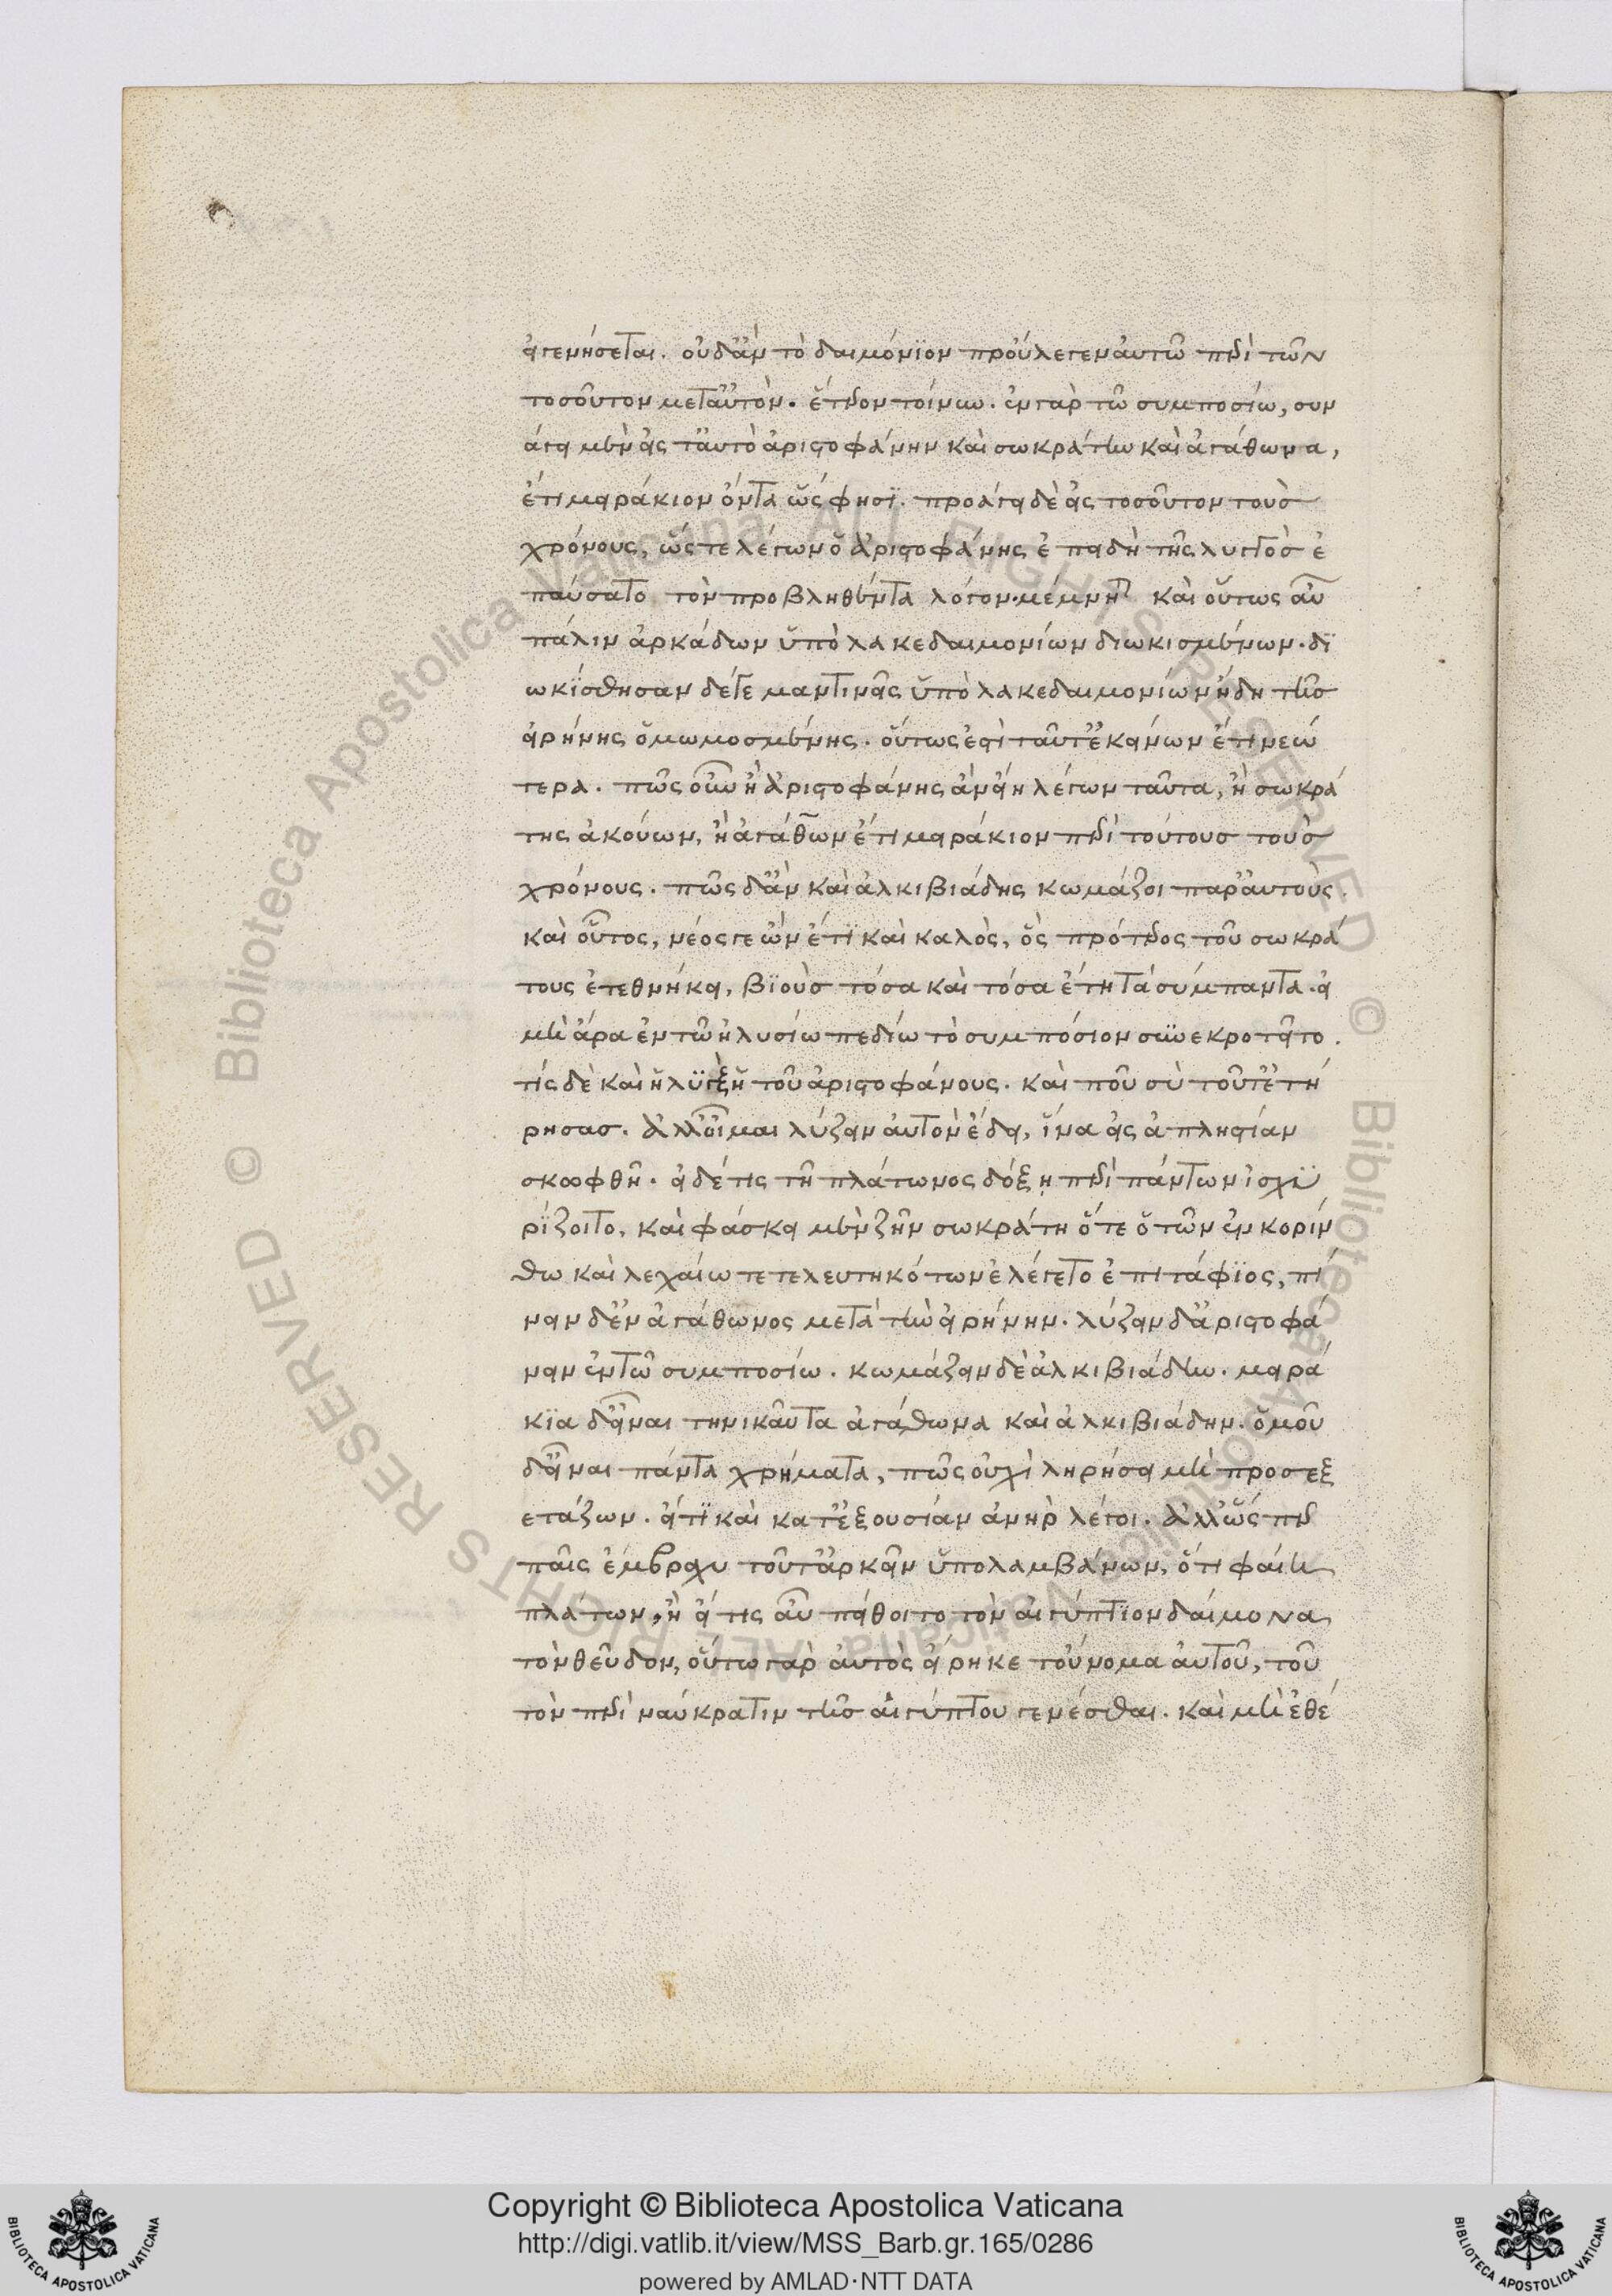 εἰ γενήσεται. οὐδ' ἂν τὸ δαιμόνιον προύλεγεν αὐτῶ περὶ τῶν
τοσοῦτον μετ' αὐτὸν. ἕτερον τοίνυν. ἐν γὰρ τῶ συμποσίω, συν
άγει μὲν εἰς ταὐτὸ ἀριστοφάνην καὶ σωκράτην καὶ ἀγάθωνα,
ἔτι μειράκιον ὄντα ὥς φησϊ. προάγει δὲ εἰς τοσοῦτον τοὺσ
χρόνους, ὥστε λέγων ὁ ἀριστοφάνης ἐπειδὴ τῆς λυγγὸσ ἐ
παύσατο τὸν προβληθέντα λόγον. μέμνηται καὶ οὕτως αὖ
πάλιν ἀρκάδων ὑπὸ λακεδαιμονίων διωκισμένων. δϊ
ωκίσθησαν δέ γε μαντινεῖς ὑπὸ λακεδαιμονίων ἤδη τῆσ
εἰρήνης ὀμωμοσμένης. οὕτως ἐστὶ ταῦτ' ἐκείνων ἔτι νεώ
τερα. πῶς οὖν ἢ ἀριστοφάνης ἂν εἴη λέγων ταῦτα, ἢ σωκρά
της ἀκούων, ἢ ἀγάθων ἔτι μειράκιον περὶ τούτουσ τοὺσ
χρόνους. πῶς δ' ἂν καὶ ἀλκιβιάδης κωμάζοι παρ' αὐτοὺς.
καὶ οὗτος, νέος γε ὢν ἔτϊ καὶ καλὸς, ὃς πρότερος τοῦ σωκρά
τους ἐτεθνήκει, βϊοὺσ τόσα καὶ τόσα ἔτη τὰ σύμπαντα. εἰ
μὴ ἄρα ἐν τῶ ἠλυσίω πεδίω τὸ συμπόσιον συνεκροτεῖτο.
τίς δὲ καὶ ἡ λὺγξ ἡ τοῦ ἀριστοφάνους. καὶ ποῦ σὺ τοῦτ' ἐτή
ρησασ. ἀλλ' οἶμαι λύζειν αὐτὸν ἔδει, ἵνα εἰς ἀπληστίαν
σκωφθῆ. εἰ δέ τις τῆ πλάτωνος δόξῃ περὶ πάντων ἰσχυ
ρίζοιτο, καὶ φάσκει μὲν ζῆν σωκράτη ὅτε ὁ τῶν ἐν κορίν
θω καὶ λεχαίω τετελευτηκότων ἐλέγετο ἐπιτάφϊος, πί
νειν δ' ἐν ἀγάθωνος μετὰ τὴν εἰρήνην. λύζειν δ' ἀριστοφά
νειν ἐν τῶ συμποσίω. κωμάζειν δὲ ἀλκιβιάδην. μειρά
κϊα δ' εἶναι τηνικαῦτα ἀγάθωνα καὶ ἀλκιβιάδην. ὁμοῦ
δ' εἶναι πάντα χρήματα, πῶς οὐχὶ ληρήσει μὴ προσεξ
ετάζων. εἴ τϊ καὶ κατ' ἐξουσίαν ἁνὴρ λέγοι. ἀλλ' ὥσπερ
παῖς ἔμβραχυ τοῦτ' ἀρκεῖν ὑπολαμβάνων, ὅτι φαίη
πλάτων, ἢ εἴ τις αὖ πείθοιτο τὸν αἰγύπτϊον δαίμονα
τὸν θεῦδον, οὕτω γὰρ αὐτὸς εἴρηκε τοὔνομα αὐτοῦ, τοῦ
τον περὶ ναύκρατιν τῆσ αἰγύπτου γενέσθαι. καὶ μὴ ἐθέ